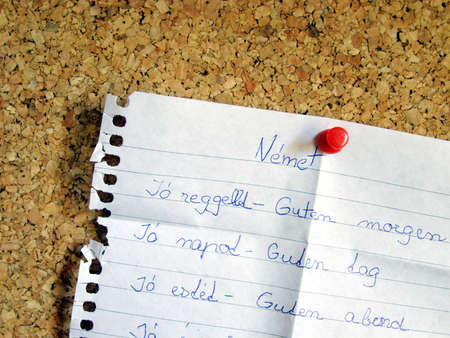 Német
Jó reggelld - Guten morgen
Jó napod - Guden dag
Jó esdéd - Guden abend
Jó